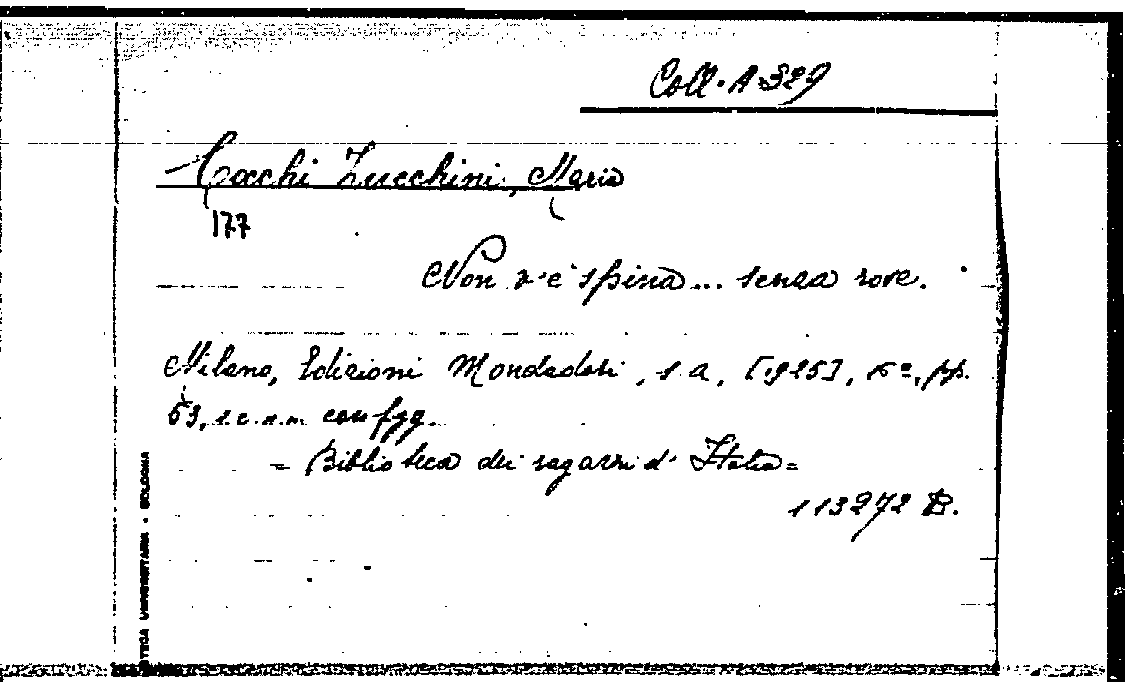 Coll. A 329
Cocchi Zucchini, Maria
177
Non v'è spina... senza rose.
Milano, Edizioni Mondadori, s.a, [1925], 8º, pp.
53, con figg.
= Biblioteca dei ragazzi d'Italia =
113272 B.
TECA UNIVERSITARIA • BOLOGNA